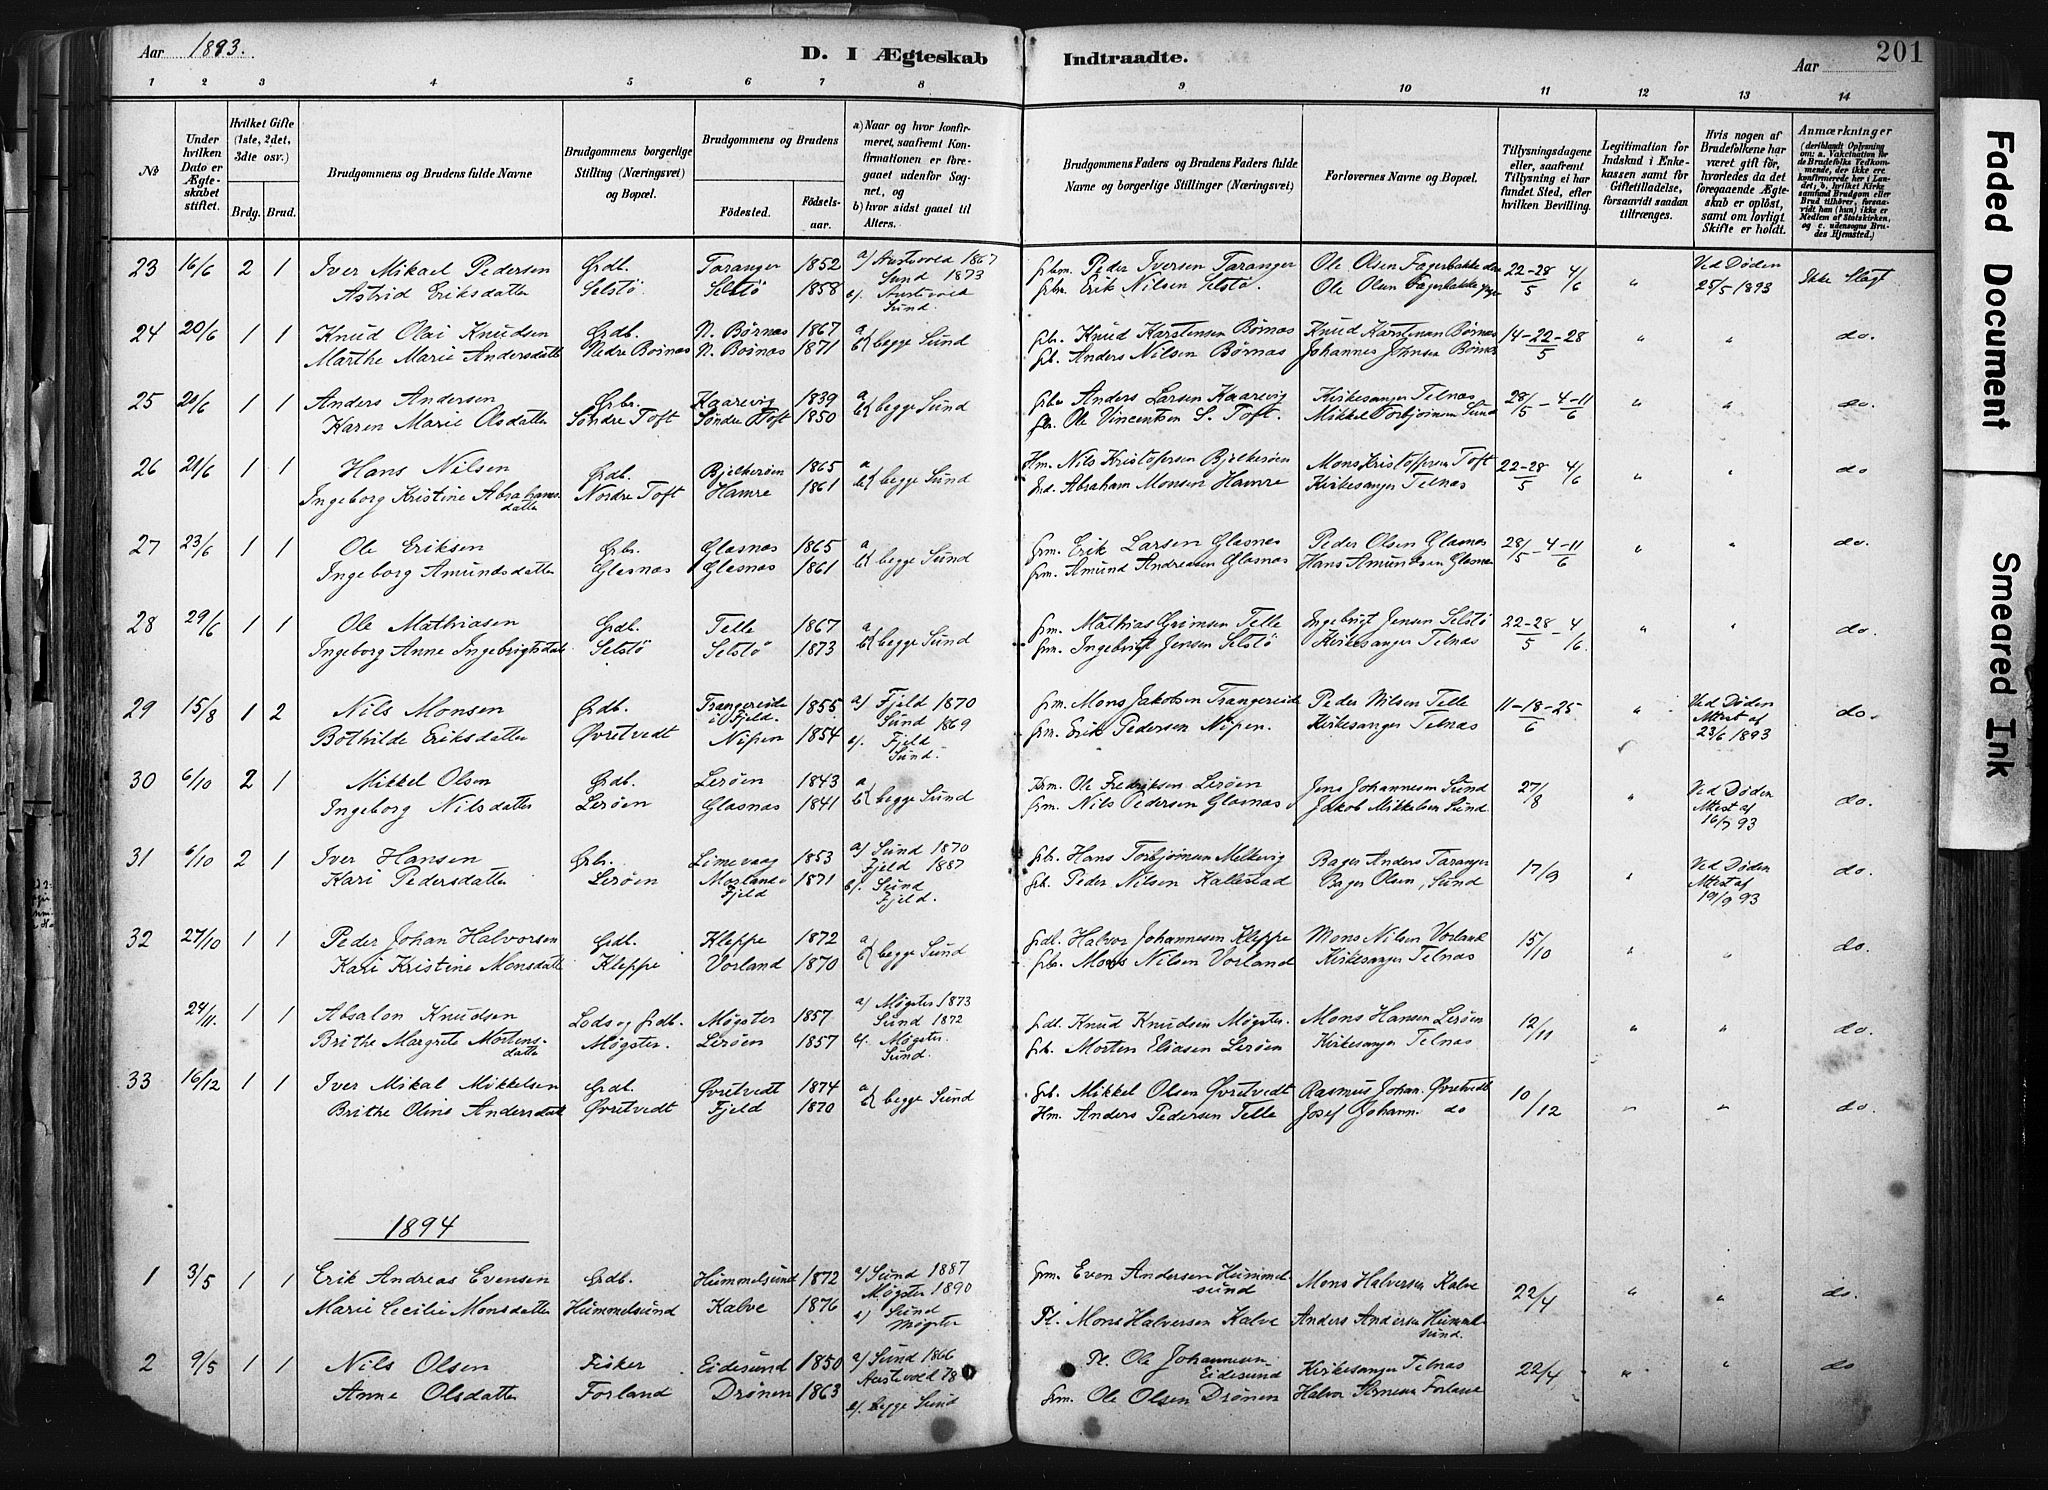 Aar 1893.
D. I Ægteskab Indtraadte.
Aar
201
1 2 3 4 5 6 7 8 9 10 11 12 13 14
№
Under hvilken Dato er Ægteskabet stiftet.
Hvilket Gifte (1ste, 2det, 3die osv.)
Brdg. Brud.
Brudgommens og Brudens fulde Navne
Brudgommens borgerlige Stilling (Næringsvei) og Bopæl.
Brudgommens og Brudens
Fødested.
Fødsels-aar.
a) Naar og hvor konfirmeret, saafremt Konfirmationen er foregaaet udenfor Sognet, og
b) hvor sidst gaaet til Alters.
Brudgommens Faders og Brudens Faders fulde Navne og borgerlige Stillinger (Næringsvei)
Forlovernes Navne og Bopæl.
Tillysningsdagene eller, saafremt Tillysning ei har fundet Sted, efter hvilken Bevilling.
Legitimation for Indskud i Enkekassen samt for Giftetilladelse, forsaavidt saadan tiltrænges.
Hvis nogen af Brudefolkene har været gift før, hvorledes da det foregaaende Ægteskab er opløst, samt om lovligt Skifte er holdt.
Anmærkninger (deriblandt Oplysning om: a. Vakcination for de Brudefolks Vedkommende, der ikke ere konfirmerede her i Landet; b. hvilket Kirkesamfund Brudgom eller Brud tilhører, forsaavidt han (hun) ikke er Medlem af Statskirken, og c. udensogns Brudes Hjemsted.)
23 16/6 2 1 Iver Mikael Pedersen Grdb. Taranger 1852 a/ Austevold 1867 Grbm. Peder Iversen Taranger Ole Olsen Fagerbakke 22-28 4/6 " Ved Døden Ikke Slægt
Astrid Eriksdatter Selstö Selstö 1858 Sund 1873 Erik Nilsen Selstö Ole Olsen Fagerbakke 5 25/5 1893
b/. Austevold
Sund.
24 20/6 1 1 Knud Olai Knudsen Grdb. N. Børnas 1867 a Grb. Knud Karstensen Børnas Knud Karstensen Børnas 14-22-28 " " do.
Marthe Marie Andersdatter Nedre Bornas N. Bornas 1871 b/ begge Sund Grb. Anders Nilsen Børnas Johannes Johnsen Børnas 5
25 21/6 1 1 Anders Andersen Grbr. Kaarevig 1839 a Anders Larsen Kaarevig Kirkesanger Telnas 28/5-4-11/6 " " do.
Karen Marie Olsdatter Søndre Toft Søndre Toft 1850 b/ begge Sund Ole Vincentsen S. Toft. Mikkel Torbjörnsen Sund
26 21/6 1 1 Hans Nilsen Grdb. Bjelkerøen 1865 a Hm. Nils Kristofersen Bjelkerøen Mons Kristoffersen Toft 22-28 4/6 " " do
Ingeborg Kristine Abrahamsdatter Nordre Toft Hamre 1861 b/ begge Sund Ind. Abraham Monsen Hamre Kirkesanger Telnas 5
27 23/6 1 1 Ole Eriksen Grbr. Glasnas 1865 a Grm. Erik Larsen Glasnas Peder Olsen Glasnas 28/5-4-11/6 " " do.
Ingeborg Amundsdatter Glasnas Glasnas 1861 b/ begge Sund Grm. Amund Andreasen Glasnas Hans Amundsen Glasnas
28 29/6 1 1 Ole Mathiasen Grdb. Telle 1867 a Grm. Mathias Grimsen Telle Ingebrigt Jensen Selstö 22-28-4 " " do.
Ingeborg Anne Ingebrigtsdatt Selstö Selstö 1873 b/ begge Sund Grm. Ingebrigt Jensen Selstö Kirkesanger Telnas 5 /6.
29 15/8 1 2 Nils Monsen Grdb. Trangereide i Fjeld. 1855 a/ Fjeld 1870 Grm. Mons Jakobsen Trangereid Peder Nilsen Telle 11-18-25 " Ved Døden do.
Bothilde Eriksdatter Øvretvedt Nipen 1854 Sund 1869 Grm. Erik Pedersen Nipen. Kirkesanger Telnas 6 Attest af
b/. Fjeld 23/6 1893
Sund.
30 6/10 2 1 Mikkel Olsen Grdb. Lerøen 1843 a Ole Fredriksen Lerøen Jens Johannesen Sund 27/8 " Ved Døden do.
Ingeborg Nilsdatter Lerøen Glasnas 1841 b/ begge Sund Grm. Nils Pedersen Glasnas Jakob Mikkelsen Sund. Attest af
93
31 6/10 2 1 Iver Hansen Grbr. Limevaag 1853 a/ Sund 1870 Grb. Hans Torbjørnsen Meltevig Bager Anders Taranger 17/9 " Ved Døden do.
Kari Pedersdatter Lerøen Morland i Fjeld 1871 Fjeld 1887 Grb. Peder Nilsen Kallestad Bager Olsen, Sund Attest af
b/. Sund 19/9 93
Fjeld.
32 27/10 1 1 Peder Johan Halvorsen Grdb. Kleppe 1872 a Grdb. Halvor Johannesen Kleppe Mons Nilsen Vorland 15/10 " " do.
Kari Kristine Monsdatt Kleppe Vorland 1870 b/ begge Sund Grb. Mons Nilsen Vorland Kirkesanger Telnas
24/11. 1 1 Absalon Knudsen Lods og Grdb. Møgster 1857 a/ Møgster 1873 Grdb. Knud Knudsen Møgster. Mons Hansen Lerøen 12/11 " " do.
Brithe Margrete Mortensdatter Møgster. Lerøen 1857 Sund 1872 Grb. Morten Eliasen Lerøen Kirkesanger Telnas
b/. Møgster.
Sund.
33 16/12 1 1 Iver Mikal Mikkelsen Grdb. Øvretvedt 1874 a Grb. Mikkel Olsen Øvretvedt Rasmus Johan. Øvretvedt 10/12 " " do.
Brithe Oline Andersdatt Øvretvedt Fjeld 1870 b/ begge Sund Hm. Anders Pedersen Telle Josef Johann. do
1894
1 3/5 1 1 Erik Andreas Evensen Grdb. Hummelsund 1872 a/ Sund 1887 Grm. Even Andersen Hummelsund Mons Halversen Kalve 22/4 " " do.
Marie Cecilie Monsdatter Hummelsund Kalve 1876 Møgster 1890 Pl. Mons Halversen Kalve Anders Andersen Hummelsund.
b) Sund
Møgster
2 9/5 1 1 Nils Olsen Fisker Eidesund 1850 a/ Sund 1866 Pl. Ole Johannesen Eidesund Kirkesanger Telnas 22/4 " " do
Anne Olsdatter Forland Drönen 1863 Austevold 78 Grm. Ole Olsen Drönen Halvor Forland
b/. begge Sund
Faded Document
Smeared Ink